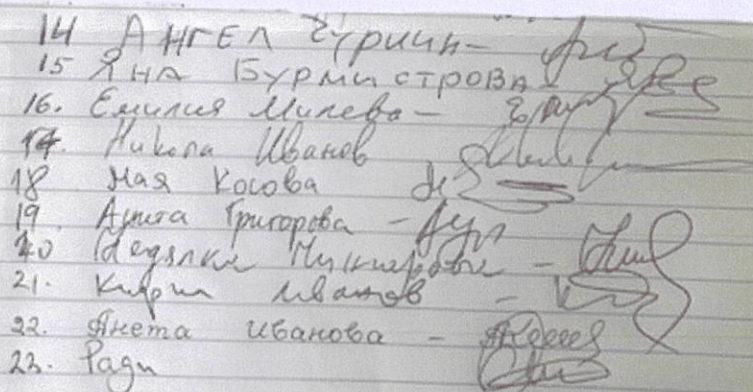 14 Ангел Чурчин -
15 Яна Бурмистрова -
16. Емилия Милева -
17. Никола Иванов
18 Мая Косова
19. Анита Григорова -
20 Недялка -
21. Кирил Иванов -
22. Анета Иванова -
23. Ради